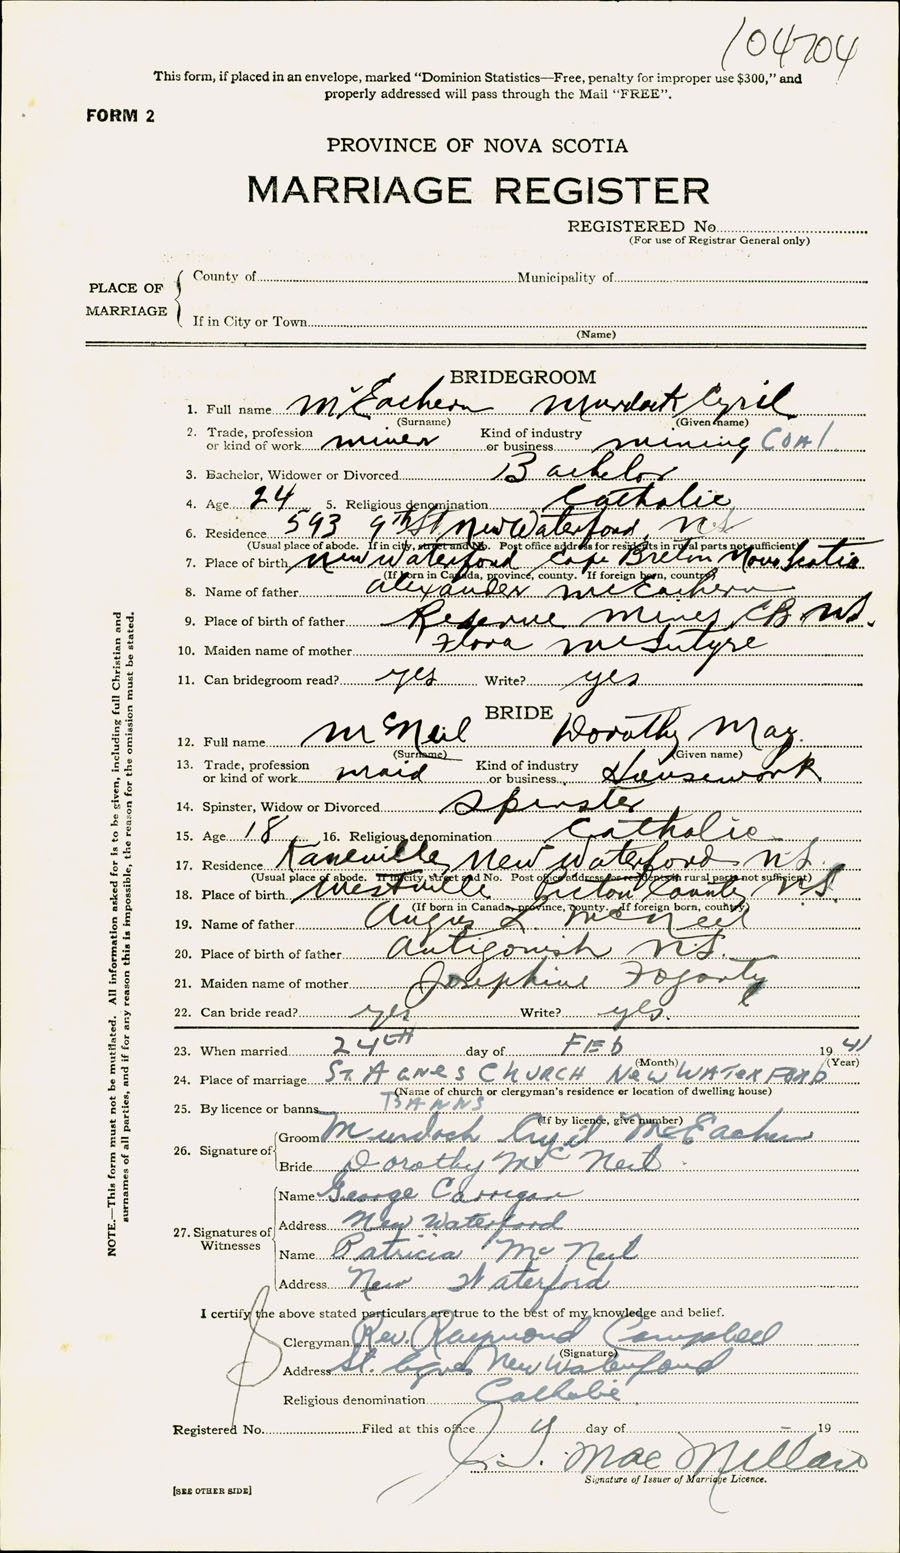 104704
This form, if placed in an envelope, marked "Dominion Statistics—Free, penalty for improper use $300," and
properly addressed will pass through the Mail "FREE".
FORM 2
PROVINCE OF NOVA SCOTIA
MARRIAGE REGISTER
REGISTERED No.
(For use of Registrar General only)
PLACE OF MARRIAGE
County of Municipality of
If in City or Town
(Name)
BRIDEGROOM
1. Full name McEachern Murdock Cyril
(Surname) (Given name)
2. Trade, profession or kind of work miner Kind of industry or business mining COAl
3. Bachelor, Widower or Divorced Bachelor
4. Age 24 5. Religious denomination Catholic
6. Residence 593 9th St New Waterford, NS
(Usual place of abode. If in city, street and No. Post office address for residents in rural parts not sufficient)
7. Place of birth New Waterford Cape Breton Nova Scotia
(If born in Canada, province, county. If foreign born, country)
8. Name of father Alexander McEachern
9. Place of birth of father Reserve Mines CB NS.
10. Maiden name of mother Flora McIntyre
11. Can bridegroom read? yes Write? yes
BRIDE
12. Full name McNeil Dorothy May.
(Surname) (Given name)
13. Trade, profession or kind of work maid Kind of industry or business Housework
14. Spinster, Widow or Divorced Spinster
15. Age 18 16. Religious denomination Catholic
17. Residence New Waterford NS.
(Usual place of abode. If in city, street and No. Post office address for residents in rural parts not sufficient)
18. Place of birth Westville Pictou County N.S.
(If born in Canada, province, county. If foreign born, country)
19. Name of father Angus L. McNeil
20. Place of birth of father Antigonish NS.
21. Maiden name of mother Josephine Fogarty
22. Can bride read? yes Write? yes.
23. When married 24TH day of FEb 1941
(Month) (Year)
24. Place of marriage ST AGNES CHURCH NEW WATERFORD
(Name of church or clergyman's residence or location of dwelling house)
25. By licence or banns BANNS
(If by licence, give number)
26. Signature of
Groom Murdock Cyril McEachern
Bride Dorothy McNeil
27. Signatures of Witnesses
Name George Carrigan
Address New Waterford
Name Patricia McNeil
Address New Waterford
I certify the above stated particulars are true to the best of my knowledge and belief.
Clergyman Rev. Raymond Campbell
(Signature)
Address St. Agnes New Waterford
Religious denomination Catholic
Registered No. Filed at this office day of 19
MacMillan
Signature of Issuer of Marriage Licence.
[SEE OTHER SIDE]
NOTE.—This form must not be mutilated. All information asked for is to be given, including full Christian and
surnames of all parties, and if for any reason this is impossible, the reason for the omission must be stated.